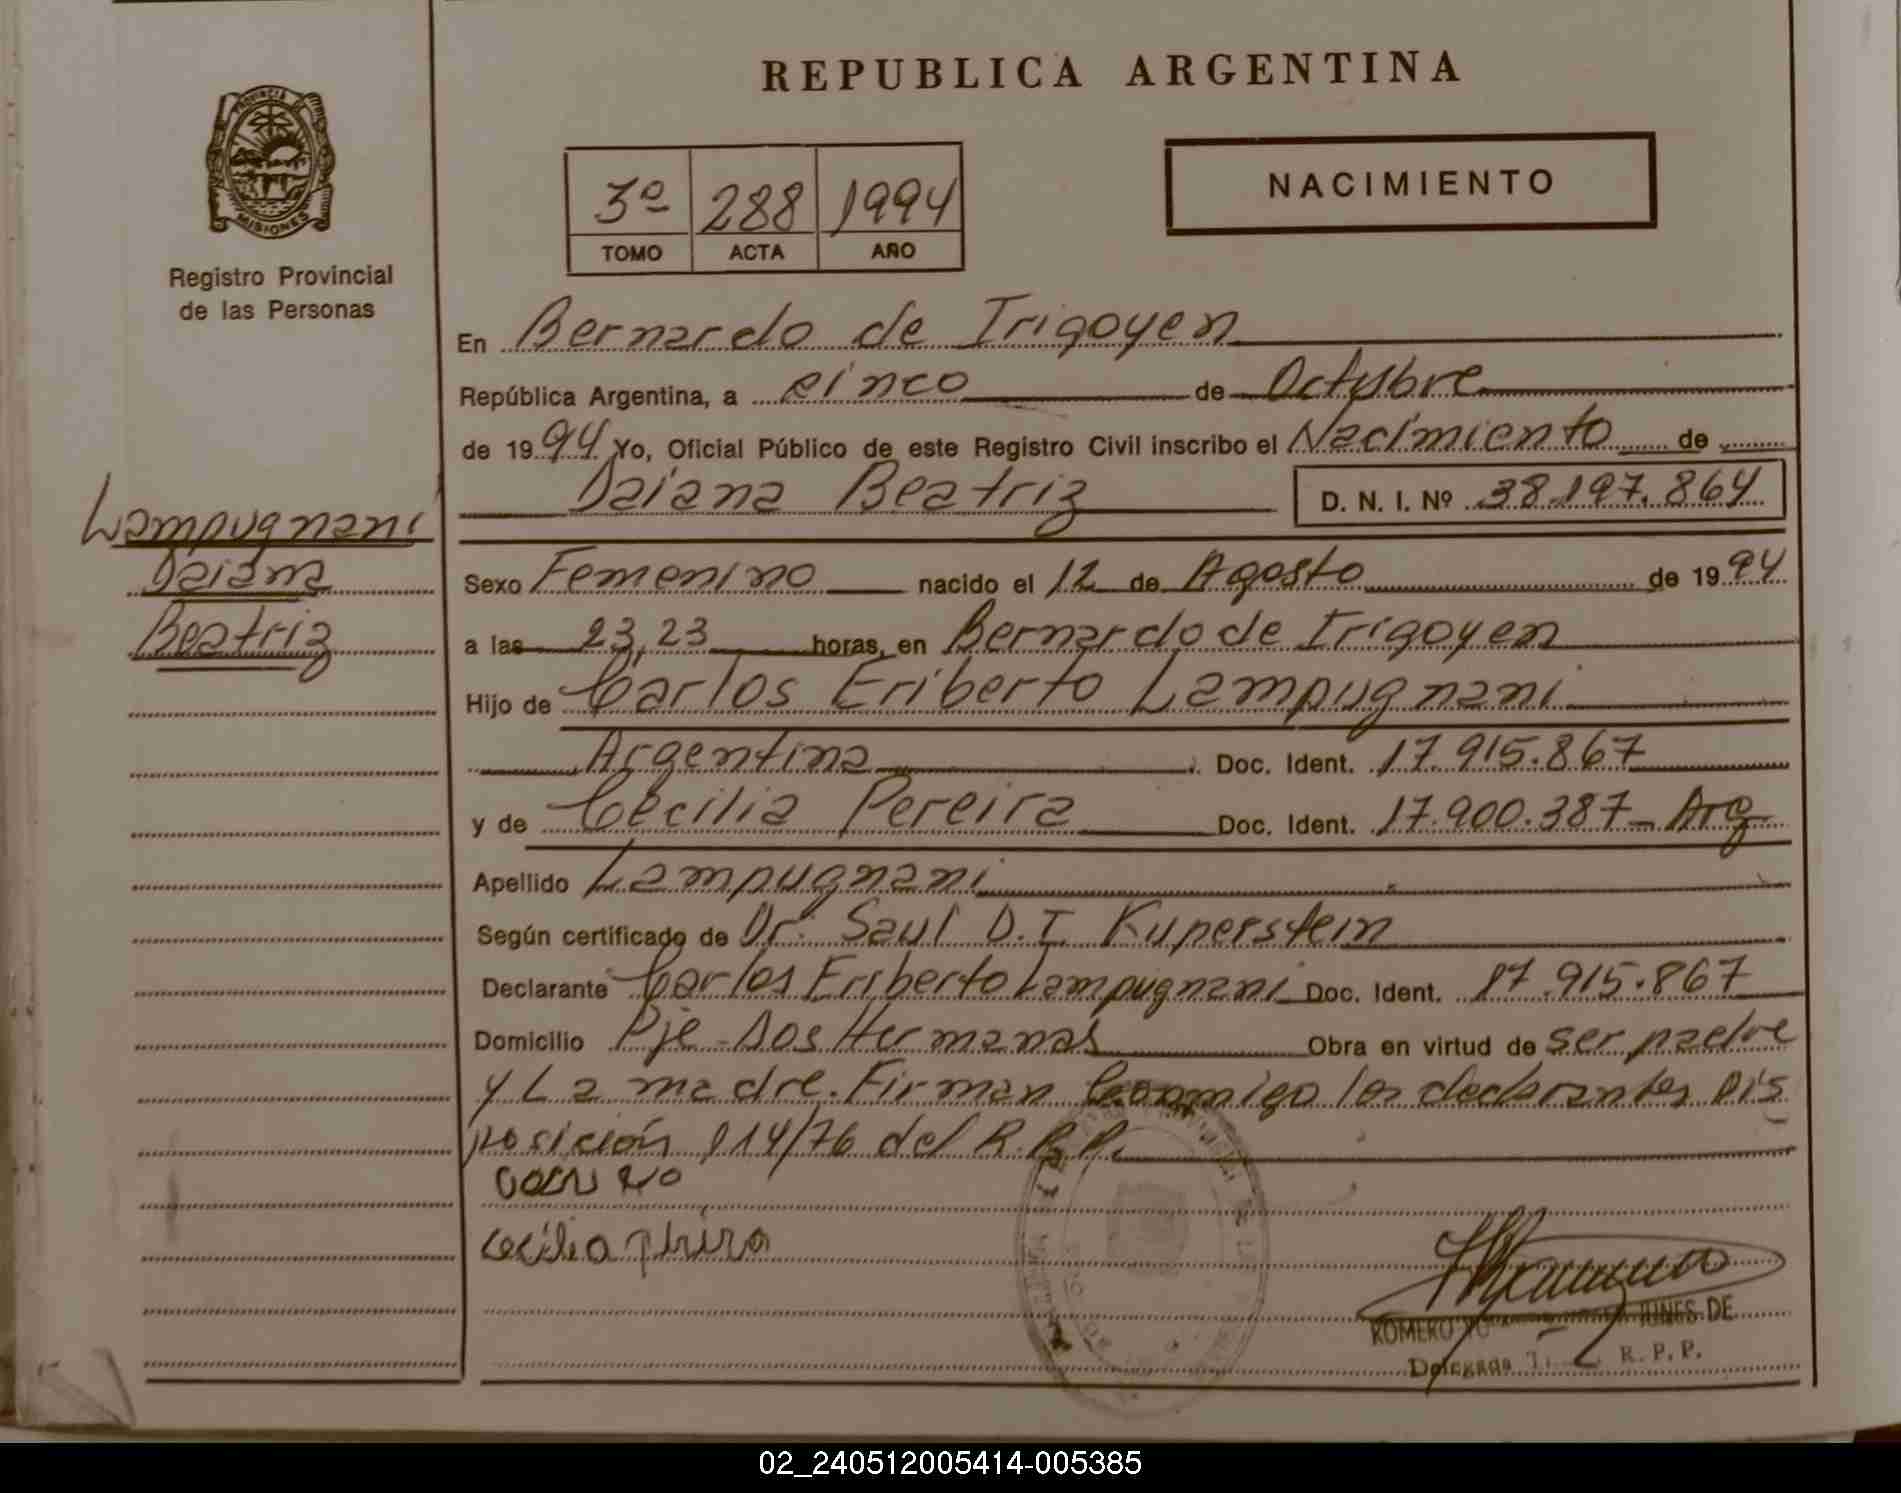 REPUBLICA ARGENTINA
PROVINCIA DE
MISIONES
Registro Provincial
de las Personas
3º 288 1994
TOMO ACTA AÑO
NACIMIENTO
En Bernardo de Irigoyen
República Argentina, a cinco de Octubre
de 1994 Yo, Oficial Público de este Registro Civil inscribo el Nacimiento de
Daiana Beatriz D. N. I. Nº 38.197.864
Lampugnani
Daiana
Beatriz
Sexo Femenino nacido el 12 de Agosto de 1994
a las 23,23 horas, en Bernardo de Irigoyen
Hijo de Carlos Eriberto Lampugnani
Argentina Doc. Ident. 17.915.867
y de Cecilia Pereira Doc. Ident. 17.900.387 - Arg
Apellido Lampugnani
Según certificado de Dr. Saul D.I. Kuperstein
Declarante Carlos Eriberto Lampugnani Doc. Ident. 17.915.867
Domicilio Pje - Dos Hermanas Obra en virtud de ser padre
y La madre. Firman Conmigo los declarantes Dis
posición 114/76 del R.P.P.
Cecilia
ROMERO JUNES DE
Delegada R. P. P.
02_240512005414-005385